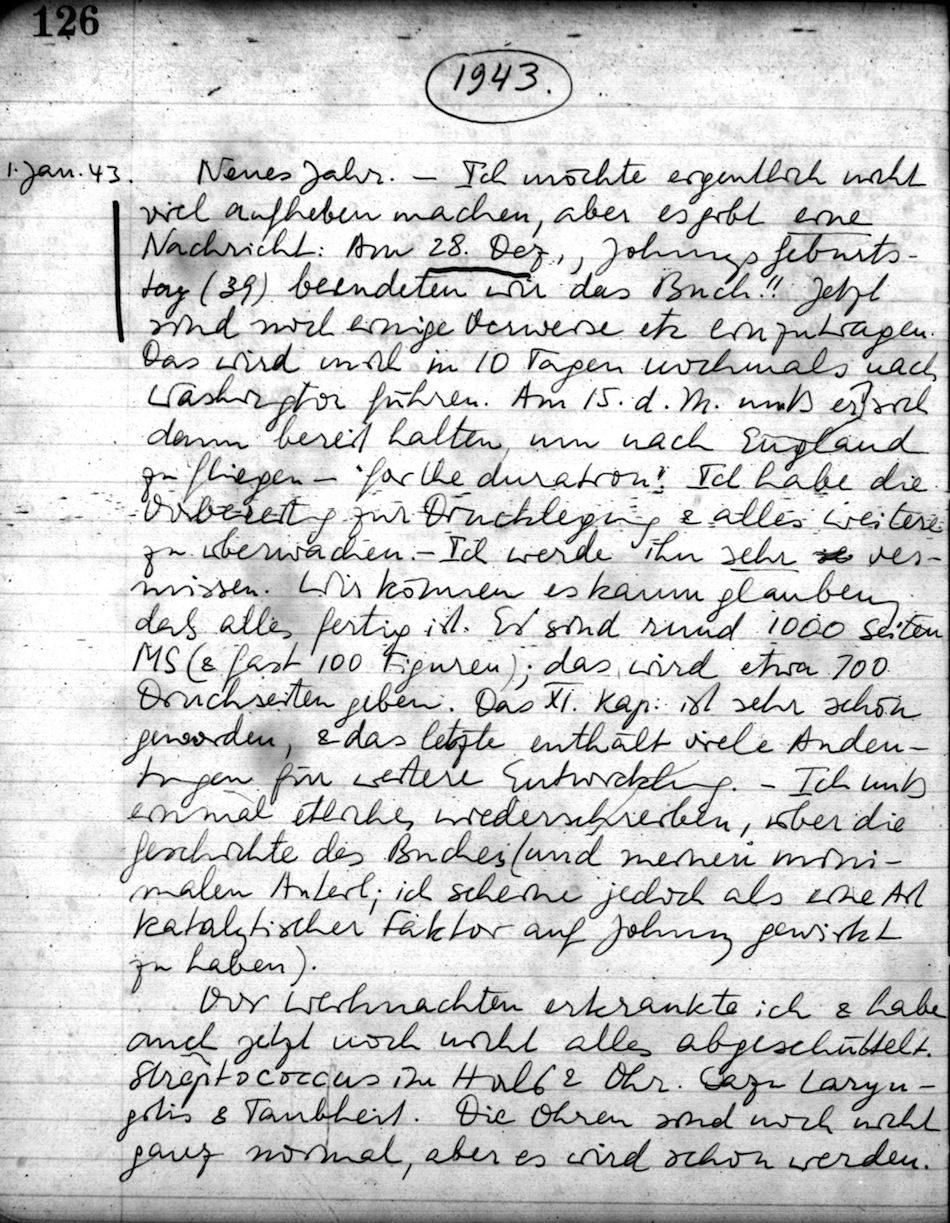 126
1943.
1. Jan. 43. Neues Jahr. – Ich möchte eigentlich nicht
viel aufheben machen, aber es gibt eine
Nachricht: Am 28. Dez., Johnnys Geburts-
tag (39) beendeten wir das Buch!! Jetzt
sind noch einige Verweise etc einzutragen.
Das wird mich in 10 Tagen nochmals nach
Washington führen. Am 15. d. M. muß er sich
dann bereit halten, um nach England
zu fliegen – "for the duration". Ich habe die
Vorbereitg zur Drucklegung & alles weitere
zu überwachen. – Ich werde ihn sehr ver-
missen. Wir können es kaum glauben,
daß alles fertig ist. Es sind rund 1000 Seiten
MS (& fast 100 Figuren); das wird etwa 700
Druckseiten geben. Das XI. Kap. ist sehr schön
geworden, & das letzte enthält viele Andeu-
tungen für weitere Entwicklung. – Ich muß
einmal etliches niederschreiben, über die
Geschichte des Buches (und meinen mini-
malen Anteil; ich scheine jedoch als eine Art
katalytischer Faktor auf Johnny gewirkt
zu haben).
Vor Weihnachten erkrankte ich & habe
auch jetzt noch nicht alles abgeschüttelt.
Streptococcus im Hals & Ohr. Dazu Laryn-
gitis & Taubheit. Die Ohren sind noch nicht
ganz normal, aber es wird schon werden.